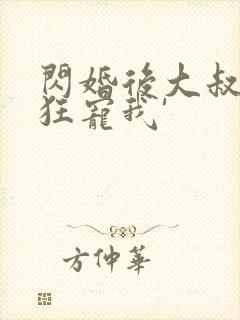 閃婚後大叔
狂寵我'
方仲華